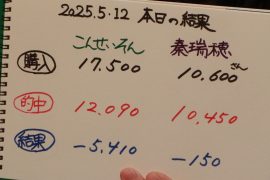 2025.5.12 本日の結果
こんせいそん 秦瑞穂さん
購入 17.500 10.600
的中 12.090 10.450
結果 -5.410 -150